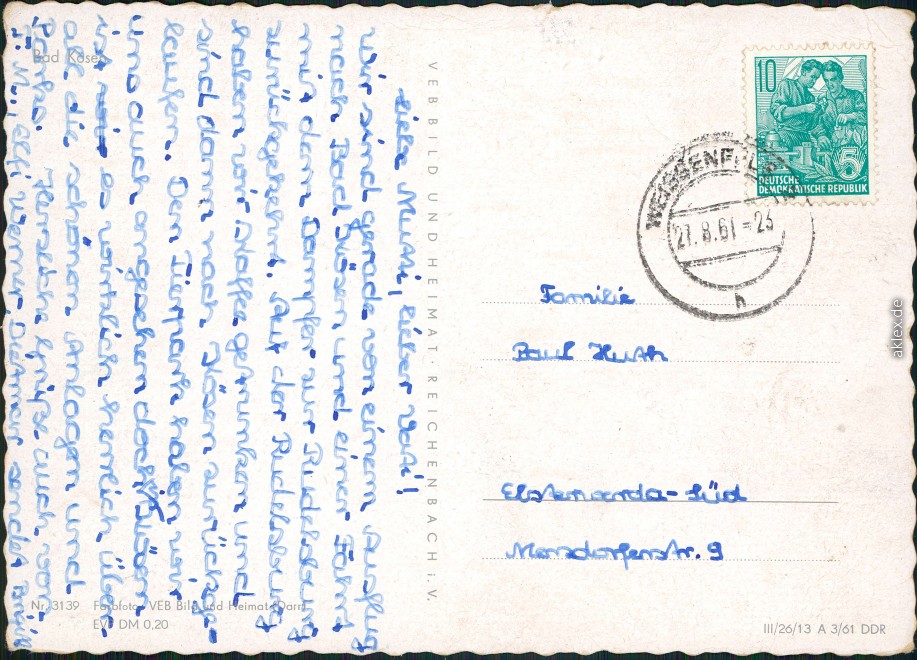 Bad Kösen
Liebe Mutti, lieber Vati!
Wir sind gerade von einem Ausflug
nach Bad Kösen und einer Fahrt
mit dem Dampfer zur Rudelsburg
zurückgekehrt. Auf der Rudelsburg
haben wir Kaffe getrunken und
sind dann nach Kösen zurückge-
laufen. Den Tierpark haben wir
uns auch angesehen doch Kösen
ist es wirklich herrlich über-
all die schönen Anlagen und
Parks. Herzliche Grüße auch von
Werner Dietmar sendet
VEB BILD UND HEIMAT · REICHENBACH i. V.
Nr. 3139 Farbfoto: VEB Bild und Heimat (Darr)
EVP DM 0,20
10
5
DEUTSCHE
DEMOKRATISCHE REPUBLIK
WEISSENFELS
27.8.61-23
h
Familie
Paul Huth
Elsterwerda-Süd
Merzdorferstr. 9
III/26/13 A 3/61 DDR
aklex.de